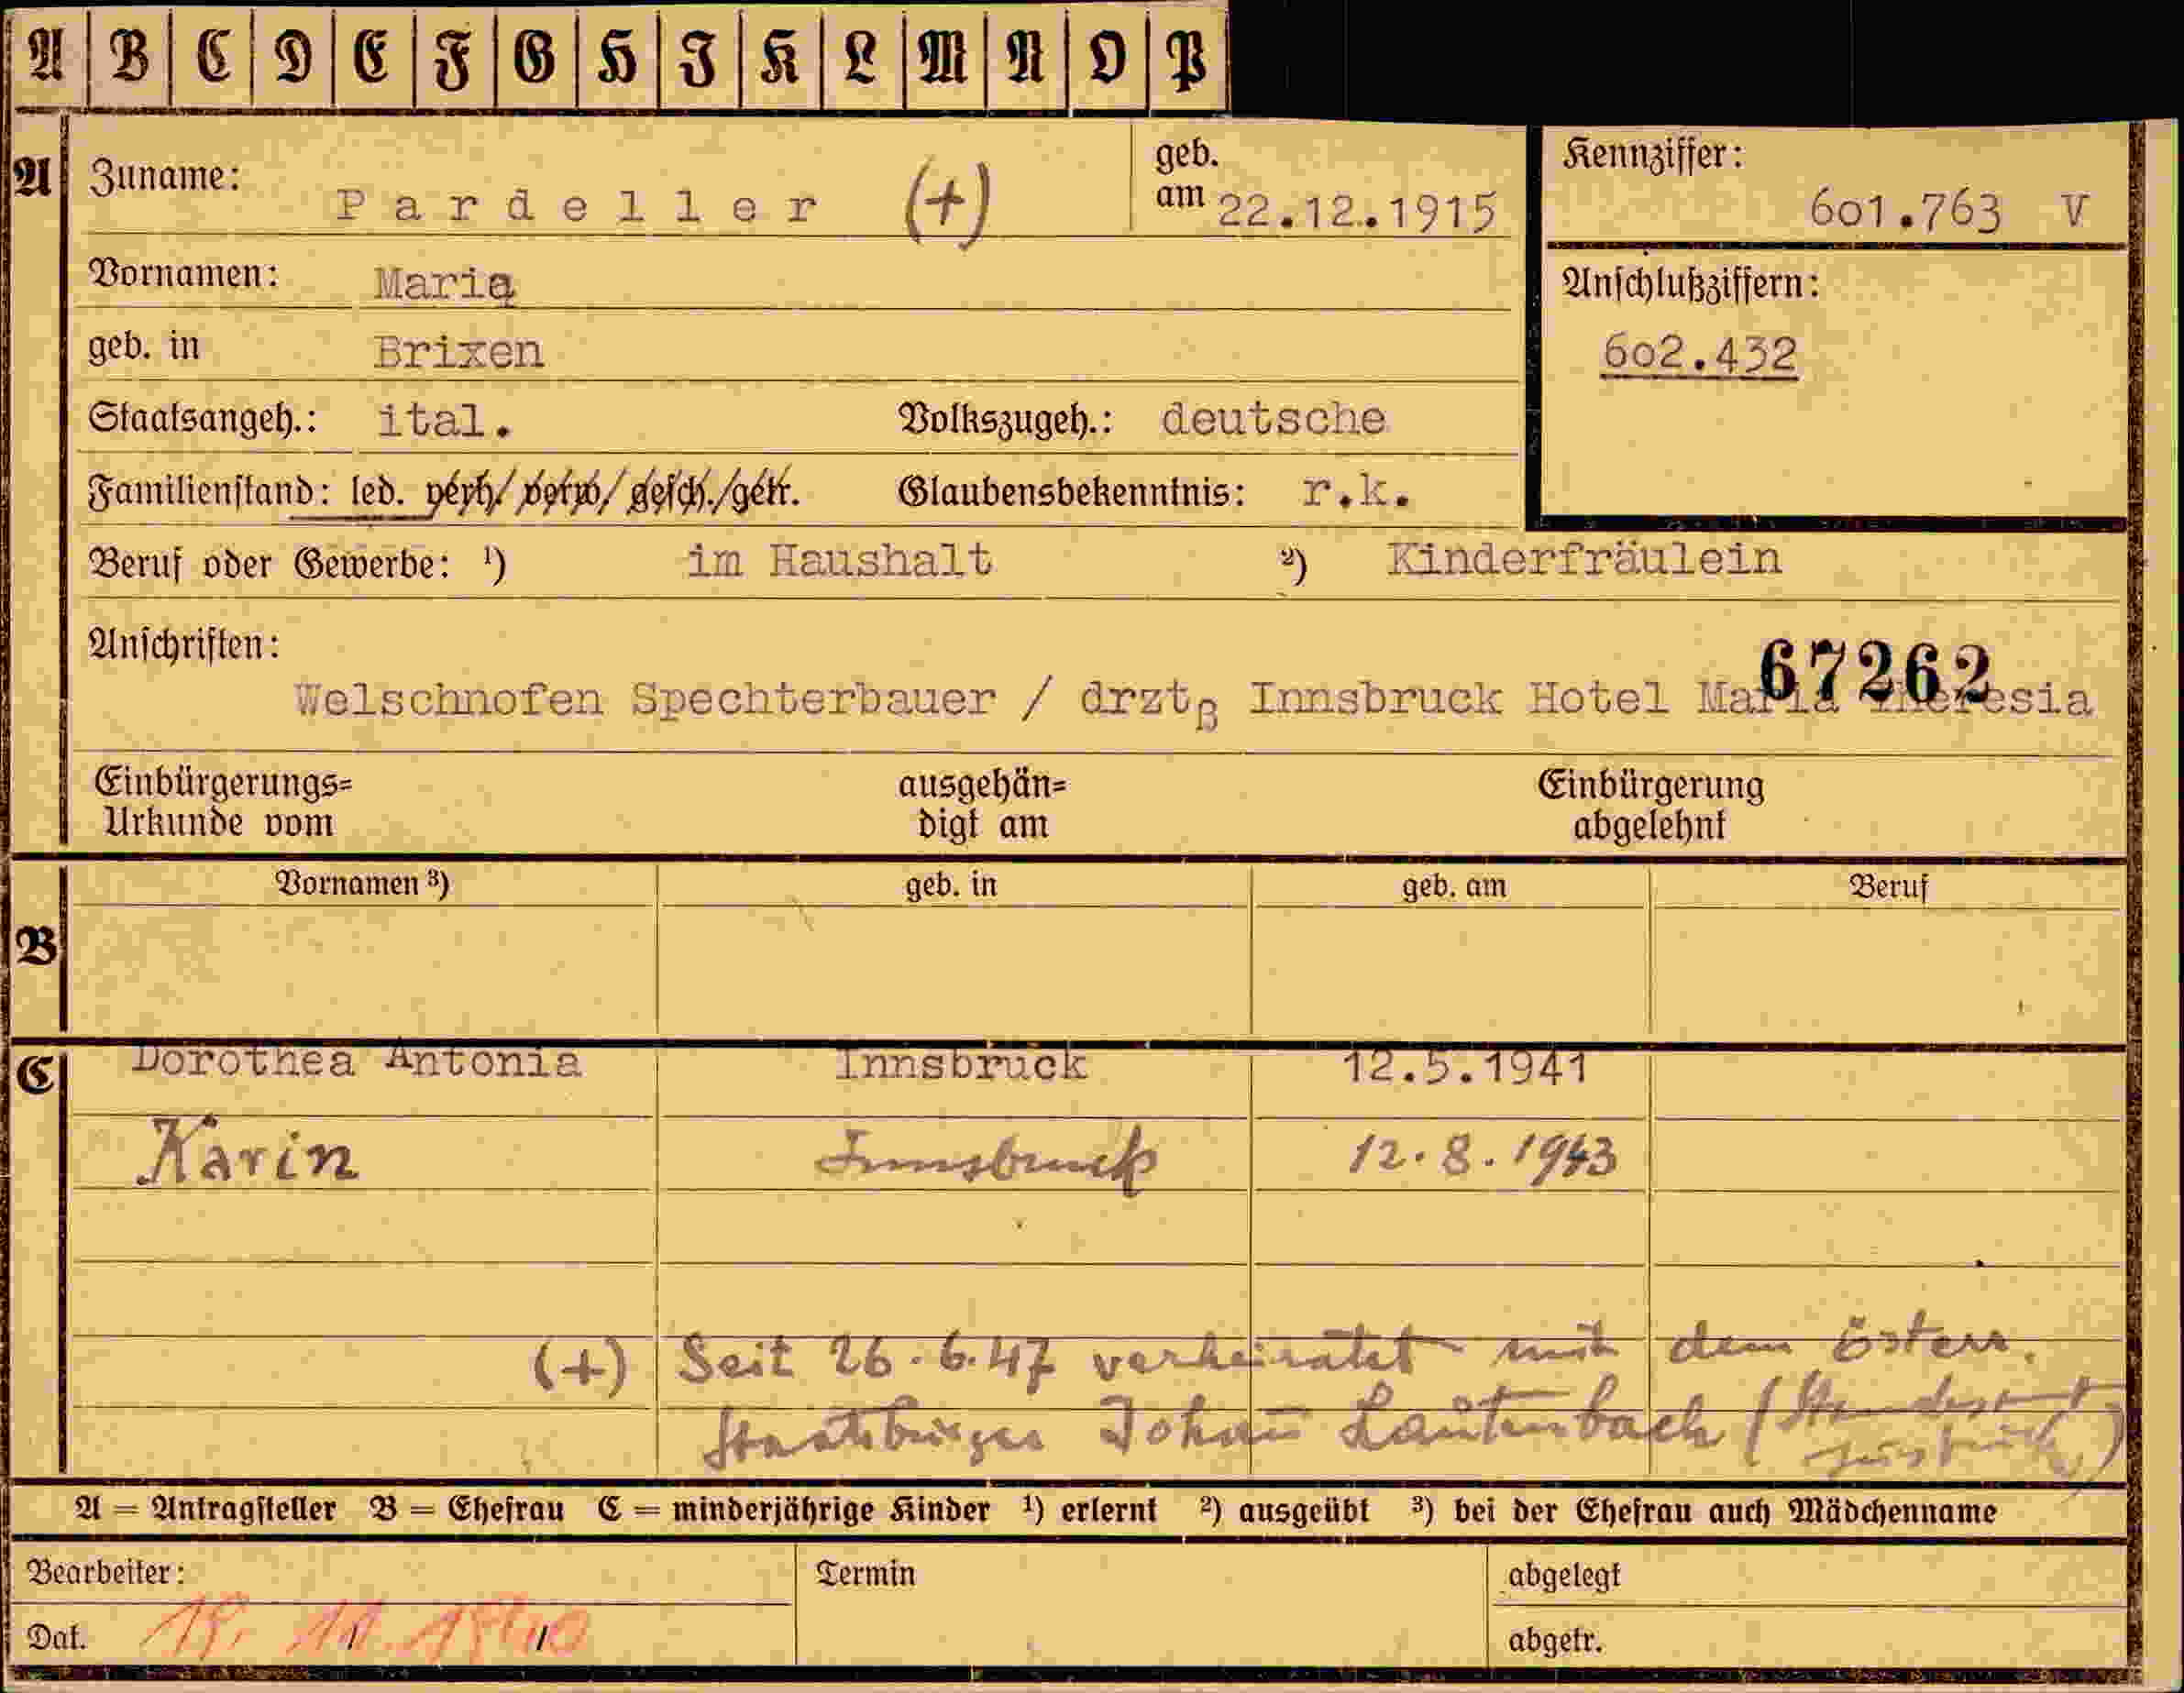 A B C D E F G H I K L M N O P
A Zuname: Pardeller (+) geb. am 22.12.1915 Kennziffer: 601.763 V
Vornamen: Maria Anschlußziffern:
geb. in Brixen 602.432
Staatsangeh.: ital. Volkszugeh.: deutsche
Familienstand: led. verh./verw/gesch./getr. Glaubensbekenntnis: r.k.
Beruf oder Gewerbe: ¹) im Haushalt ²) Kinderfräulein
Anschriften: 67262
Welschnofen Spechterbauer / drztß Innsbruck Hotel Maria Theresia
Einbürgerungs= ausgehän= Einbürgerung
Urkunde vom digt am abgelehnt
Vornamen ³) geb. in geb. am Beruf
B
C Dorothea Antonia Innsbruck 12.5.1941
Karin Innsbruck 12.8.1943
(+) Seit 26.6.47 verheiratet mit dem österr.
Staatsbürger Johann Lautenbach (Standesamt
Innsbruck)
A = Antragsteller B = Ehefrau C = minderjährige Kinder ¹) erlernt ²) ausgeübt ³) bei der Ehefrau auch Mädchenname
Bearbeiter: Termin abgelegt
Dat. 19. 11. 1940 abgetr.